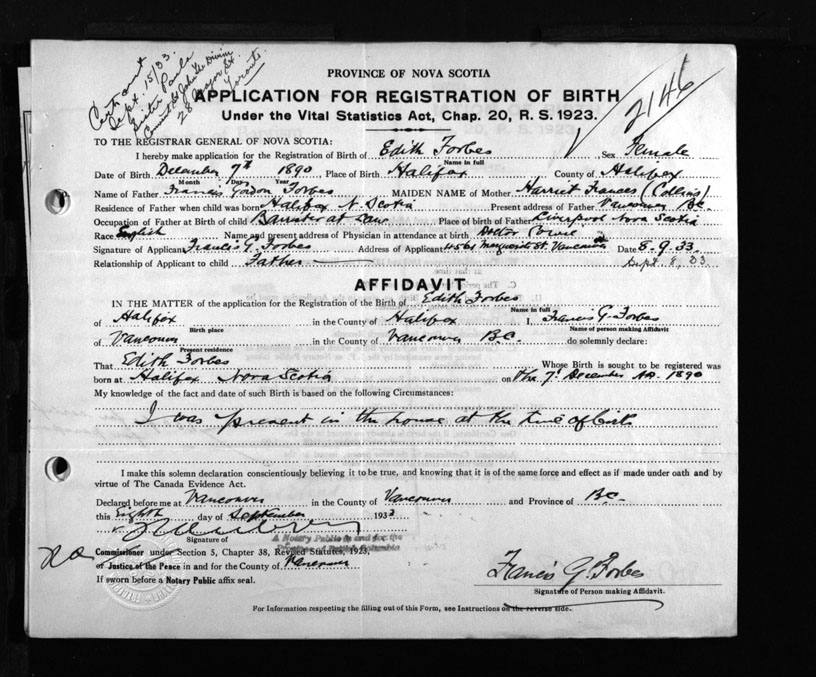 Cert out
Sept. 15/33.
Sister Paula
Convent of
28 Major St.
Toronto.
2146
PROVINCE OF NOVA SCOTIA
APPLICATION FOR REGISTRATION OF BIRTH
Under the Vital Statistics Act, Chap. 20, R. S. 1923.
TO THE REGISTRAR GENERAL OF NOVA SCOTIA:
I hereby make application for the Registration of Birth of Edith Forbes Sex Female
Name in full
Date of Birth December 7th 1890 Place of Birth Halifax County of Halifax
Month Day Year
Name of Father Francis Gordon Forbes MAIDEN NAME of Mother Harriet Frances (Collins)
Residence of Father when child was born Halifax N. Scotia Present address of Father Vancouver BC.
Occupation of Father at Birth of child Barrister at Law Place of birth of Father Liverpool Nova Scotia
Race English Name and present address of Physician in attendance at birth Doctor Cowie
Signature of Applicant Francis G. Forbes Address of Applicant 4561 Marguerite St. Vancouver Date 8. 9. 33.
Relationship of Applicant to child Father Sept 8, 33
AFFIDAVIT
IN THE MATTER of the application for the Registration of the Birth of Edith Forbes
Name in full
of Halifax in the County of Halifax I, Francis G. Forbes
Birth place Name of person making Affidavit
of Vancouver in the County of Vancouver B.C. do solemnly declare:
Present residence
That Edith Forbes Whose Birth is sought to be registered was
born at Halifax Nova Scotia on the 7th December A.D. 1890
My knowledge of the fact and date of such Birth is based on the following Circumstances:
I was present in the house at the time of birth
I make this solemn declaration conscientiously believing it to be true, and knowing that it is of the same force and effect as if made under oath and by
virtue of The Canada Evidence Act.
Declared before me at Vancouver in the County of Vancouver and Province of B.C.
this Eighth day of September 1933
Signature of
A Notary Public in and for the
Province of British Columbia
Commissioner under Section 5, Chapter 38, Revised Statutes, 1923,
or Justice of the Peace in and for the County of Vancouver
If sworn before a Notary Public affix seal.
Francis G. Forbes
Signature of Person making Affidavit.
For Information respecting the filling out of this Form, see Instructions on the reverse side.